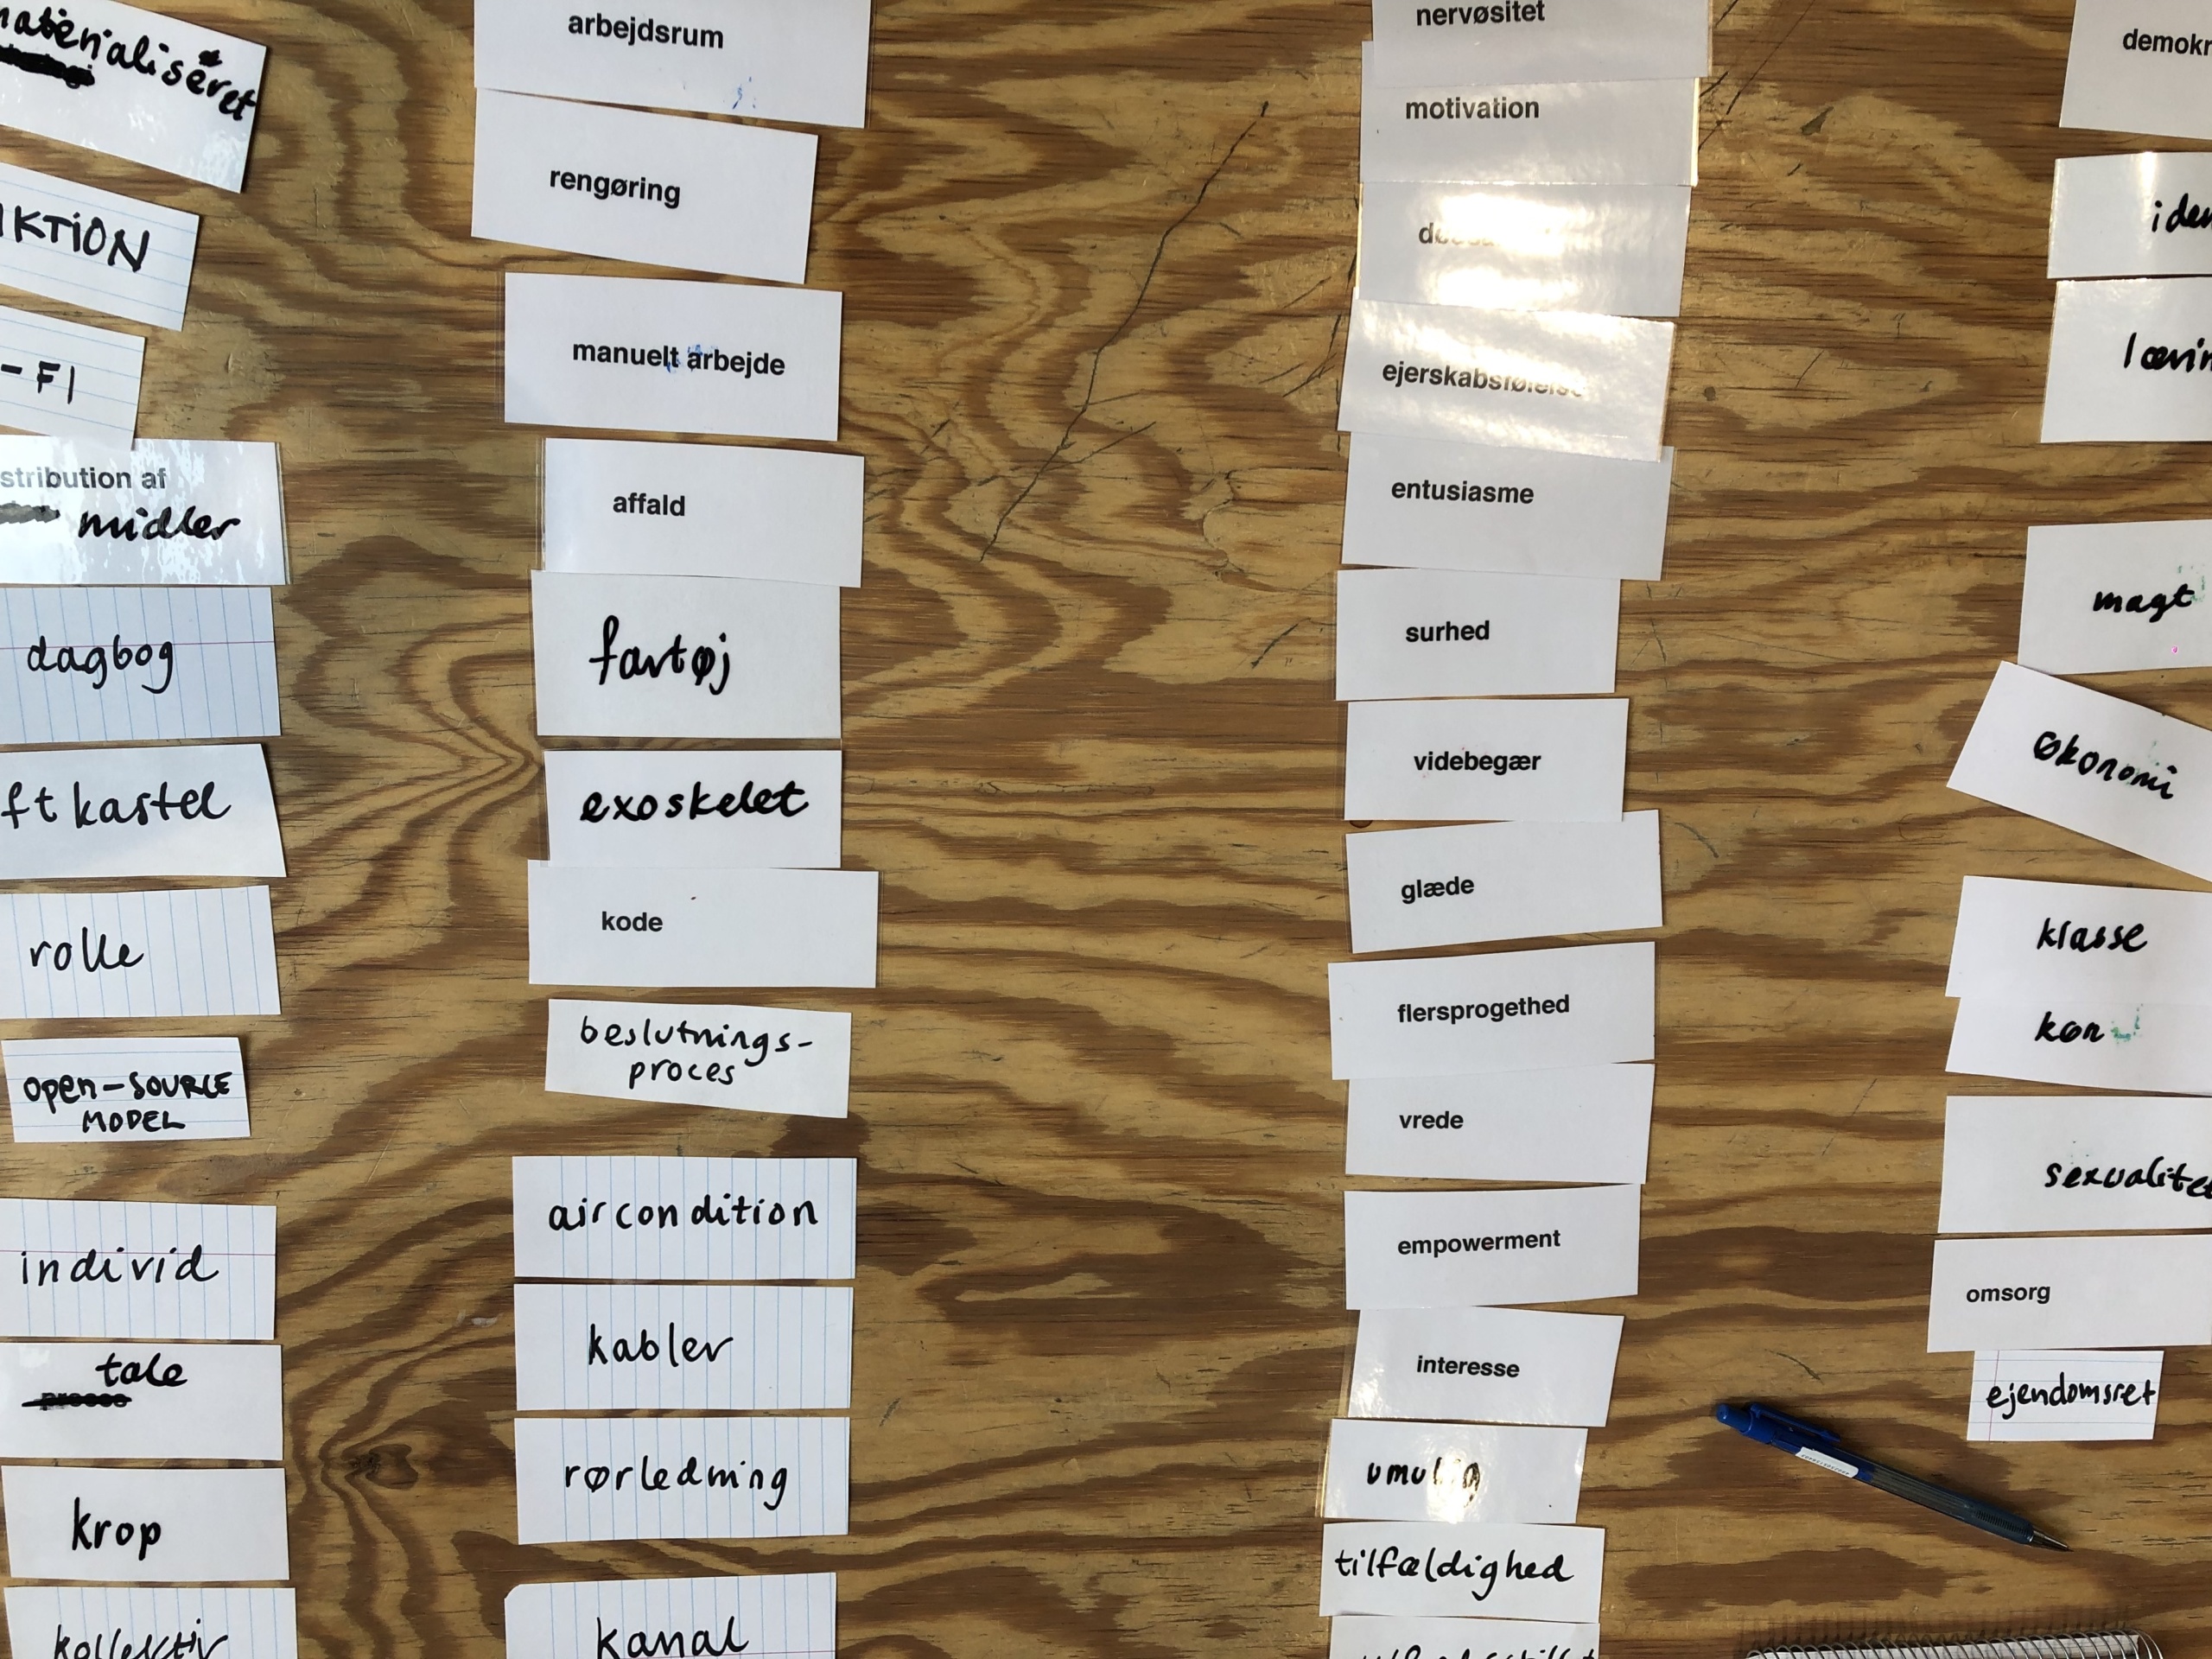 materialiseret
AKTION
-FI
stribution af
midler
dagbog
ft kastel
rolle
open-SOURCE
MODEL
individ
tale
proces
krop
kollektiv
arbejdsrum
rengøring
manuelt arbejde
affald
fartøj
exoskelet
kode
beslutnings-
proces
aircondition
kabler
rørledning
kanal
nervøsitet
motivation
ejerskabsfølelse
entusiasme
surhed
videbegær
glæde
flersprogethed
vrede
empowerment
interesse
umulig
tilfældighed
demokr
iden
lærin
magt
økonomi
klasse
køn
sexualitet
omsorg
ejendomsret